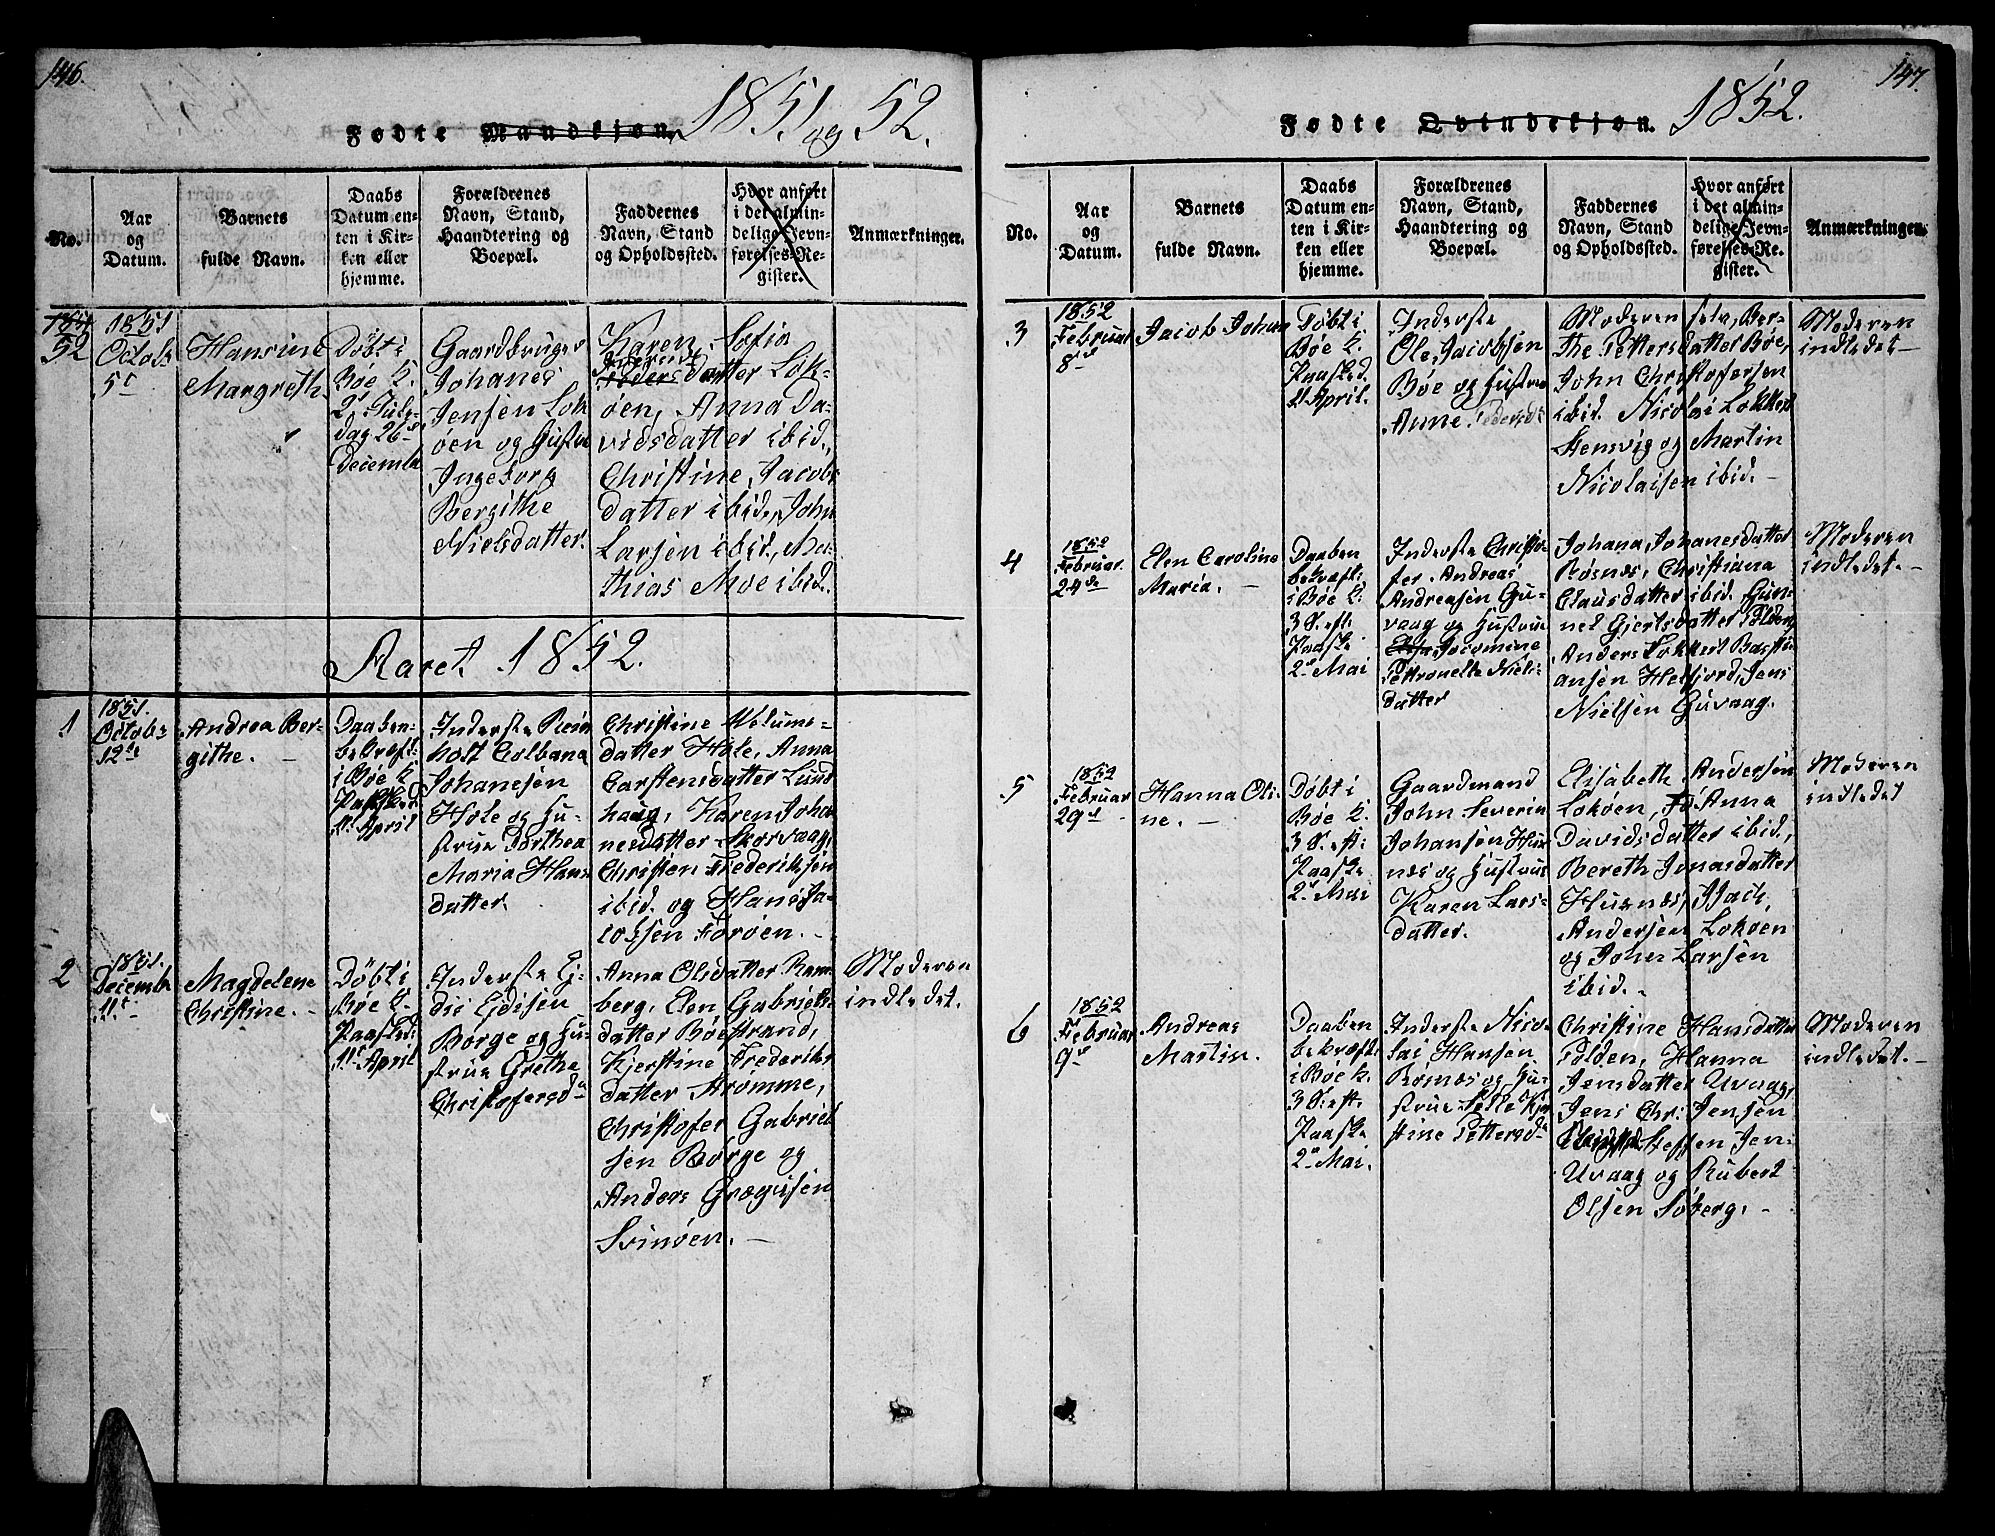 146.
Fødte Mandkjøn. 1851 og 52.
No.
Aar og Datum.
Barnets fulde Navn.
Daabs Datum enten i Kirken eller hjemme.
Forældrenes Navn, Stand, Haandtering og Boepæl.
Faddernes Navn, Stand og Opholdssted.
Hvor anført i det almindelige Jevnførelses-Register.
Anmærkninger.
52
1851
Octob:
5t
Hansine
Margreth.
Døbt i
Bøe K.
2d Jule-
dag 26d
Decemb
Gaardbruger
Johanes
Jensen Lok-
øen og Hustru
Ingeborg
Bergithe
Nielsdatter.
Karen Sofia
datter Lok-
øen, Anna Da-
vidsdatter ibid,
Christine Jacobs
datter ibid, John
Larsen ibid, Ma-
thias Moe ibid.
Aaret 1852.
1
1851.
Octobr
12te
Andrea Ber-
githe. -
Daaben
bekræft.
i Bøe K
Paasked
11t April
Inderste Rein
holt Colbana
Johanesen
Hole og Hu-
strue Dorthea
Maria Hans
datter.
Christine Welums-
datter Hole, Anna
Carstensdatter Lund
haug, Karen Joha
nesdatter Skorsvaag,
Christen Frederiksen
ibid. og Hans Ja-
cobsen Førøen. -
2
1851.
Decembr
11t -
Magdelene
Christine. -
Døbt i
Bøe K
Paasked:
11t April
Inderste E-
dis Edisen
Borge og Hu-
strue Grethe
Christofersd
Anna Olsdatter Ram-
berg, Elen Gabriels-
datter Bøestrand,
Kjerstine Frederiks
datter Strømme,
Christofer Gabriel
sen Borge og
Anders Grægusen
Svinøen. -
Moderen
indledet.
147.
Fødte Qvindekjøn. 1852.
No.
Aar og Datum.
Barnets fulde Navn.
Daabs Datum enten i Kirken eller hjemme.
Forældrenes Navn, Stand, Haandtering og Boepæl.
Faddernes Navn, Stand og Opholdssted.
Hvor anført i det almindelige Jevnførelses-Register.
Anmærkninger.
3
1852
Februar
8d
Jacob Johan
Døbt i
Bøe K.
Paasked.
11 April.
Inderste
Ole Jacobsen
Bøe og Hustrue
Anne Pedersdt
Moderen selv, Ber-
the Pettersdatter Bøe,
John Christofersen
ibid. Nicolai Lokkert
Stensvig og Martin
Nicolaisen ibid. -
Moderen
indledet -
4
1852
Februar
24de
Elen Caroline
Maria. -
Daaben
bekræft:
i Bøe K:
3 S. eft.
Paaske
2d Mai
Inderste Christo-
fer Andreas
Andreasen Gu-
vaag og Hustrue
Jocomine
Petronelle Niels
datter
Johana Johanesdatter
Røsnæs, Christiana
Clausdatter ibid. Gun-
nel Gjertsdatter
Anders Lokkert Basti-
ansen Helfjord, Jens
Nielsen Guvaag.
Moderen
indledet. -
5
1852
Februar
29d -
Hanna Oli-
ne. -
Døbt i
Bøe K.
3 S. eft:
Paaske
2d Mai
Gaardmand
John Severin
Johansen Hus-
næs og Hustrue
Karen Lars-
datter.
Elisabeth Andersen
Lokøen, Anna
Davidsdatter ibid,
Bereth Jonasdatter
Husnæs,
Andersen Lokøen
og John Larsen
ibid. -
Moderen
indledet
6
1852
Februar
9d
Andreas
Martin.
Daaben
bekræft:
i Bøe K.
3 S. eft.
Paaske
2d Mai.
Inderste Nico-
lai Hansen
Røsnæs og Hu-
strue Pelle Kjer
stine Pettersd
Christine Hansdatter
Polden, Hanna
Jensdatter Uvaag,
Jens Chr: Jensen
Steffen Jen-
Uvaag og Rubert
Olsen Søberg. -
Moderen
indledet. -